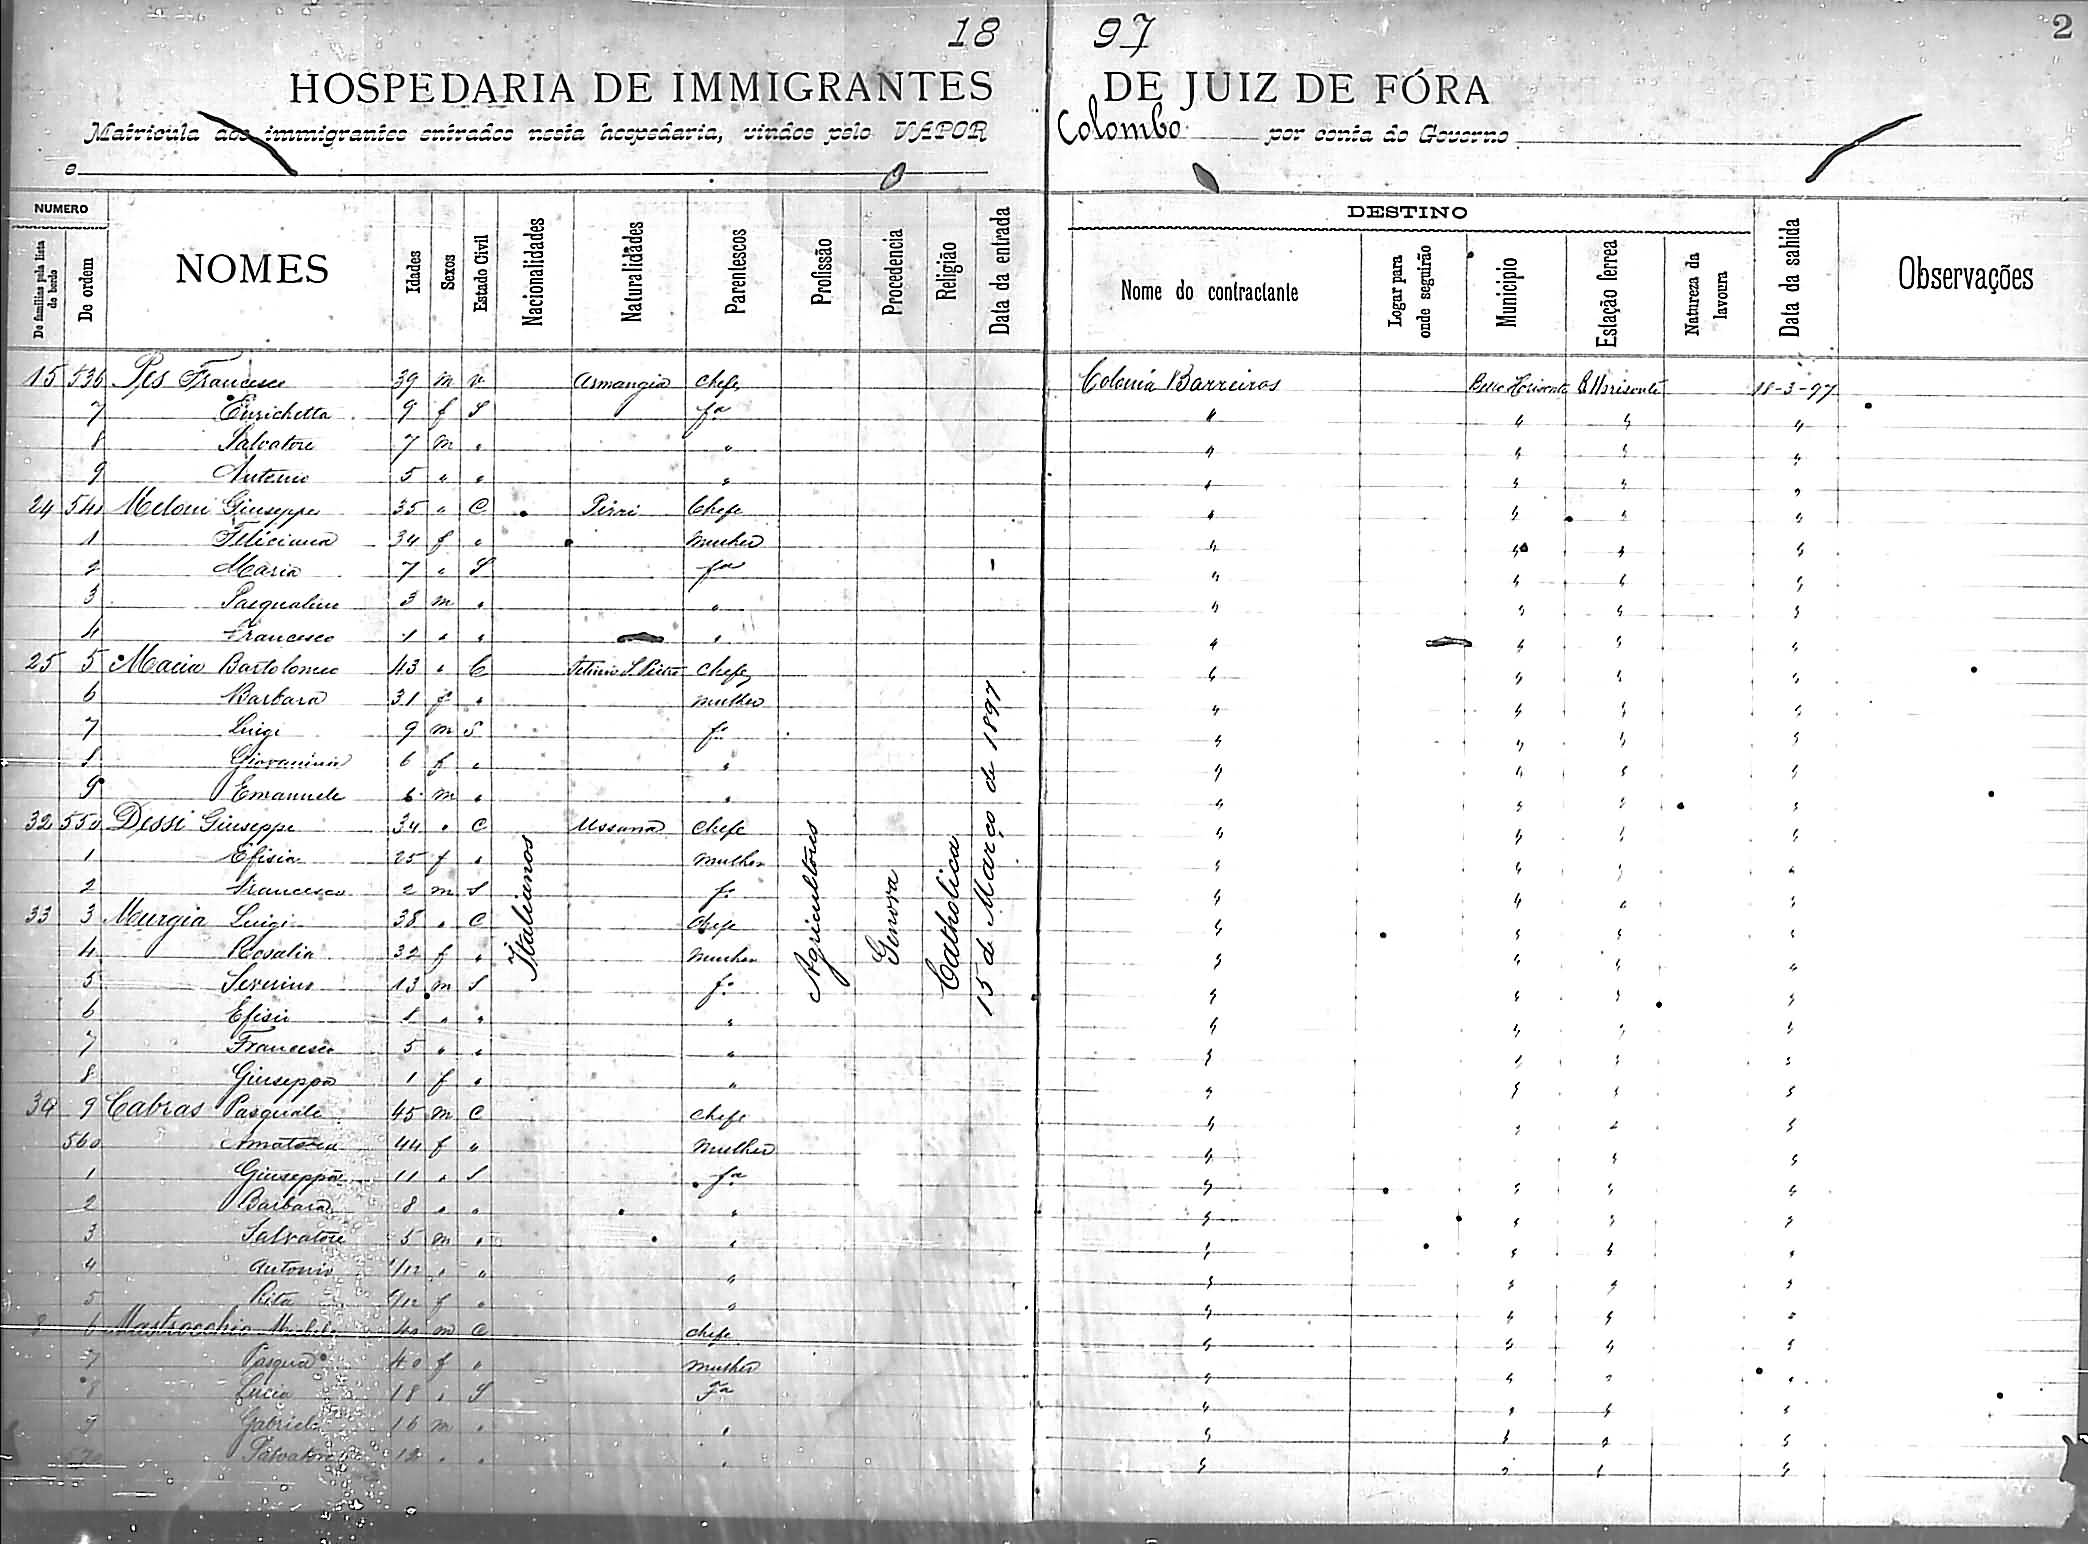 18 97
2
HOSPEDARIA DE IMMIGRANTES DE JUIZ DE FÓRA
Matricula dos immigrantes entrados nesta hospedaria, vindos pelo VAPOR Colombo por conta do Governo
e
NUMERO
De familias pela lista de bordo
De ordem
NOMES
Idades
Sexos
Estado Civil
Nacionalidades
Naturalidades
Parentescos
Profissão
Procedencia
Religião
Data da entrada
DESTINO
Nome do contractante
Logar para onde seguirão
Municipio
Estação ferrea
Natureza da lavoura
Data da sahida
Observações
15 536 Pes Francesco 39 m v Armangia Chefe Colonia Barreiros Bello Horisonte B Horisonte 18-3-97
7 Enrichetta 9 f S fa " " " "
8 Salvatore 7 m " " " " " "
9 Antonio 5 " " " " " " "
24 540 Meloni Giuseppe 35 " C Pirri Chefe " " " "
1 Feliciana 34 f " Mulher " " " "
2 Maria 7 " S fa " " " "
3 Pasqualino 3 m " " " " " "
4 Francesco 1 " " " " " " "
25 5 Macia Bartolomeo 43 " C S. Pietro Chefe " " " "
6 Barbara 31 f " Mulher " " " "
7 Luigi 9 m S fo " " " "
8 Giovannina 6 f " " " " " "
9 Emanuele m " " " " " "
32 550 Dessi Giuseppe 34 " C Ussana Chefe " " " "
1 Efisia 25 f " Mulher " " " "
2 Francesco 2 m S fo " " " "
33 3 Murgia Luigi 38 " C Chefe " " " "
4 Rosalia 32 f " Mulher " " " "
5 Severino 13 m S fo " " " "
6 Efisio 8 " " " " " " "
7 Francesco 5 " " " " " " "
8 Giuseppa 1 f " " " " " "
34 9 Cabras Pasquale 45 m C Chefe " " " "
560 44 f " Mulher " " "
1 Giuseppa 11 " S fa " " " "
2 Barbara 8 " " " " " " "
3 Salvatore 5 m " " " " " "
4 Antonio " " " " " " "
5 Rita f " " " " " "
6 Mastrocchio Michele 40 m C Chefe " " " "
7 Pasqua 40 f " Mulher " " " "
8 Lucia 18 " S Fa " " " "
9 Gabriele 16 m " " " " " "
570 Salvatore 12 " " " " " " "
Italianos
Agricultores
Genova
Catholica
15 de Março de 1897